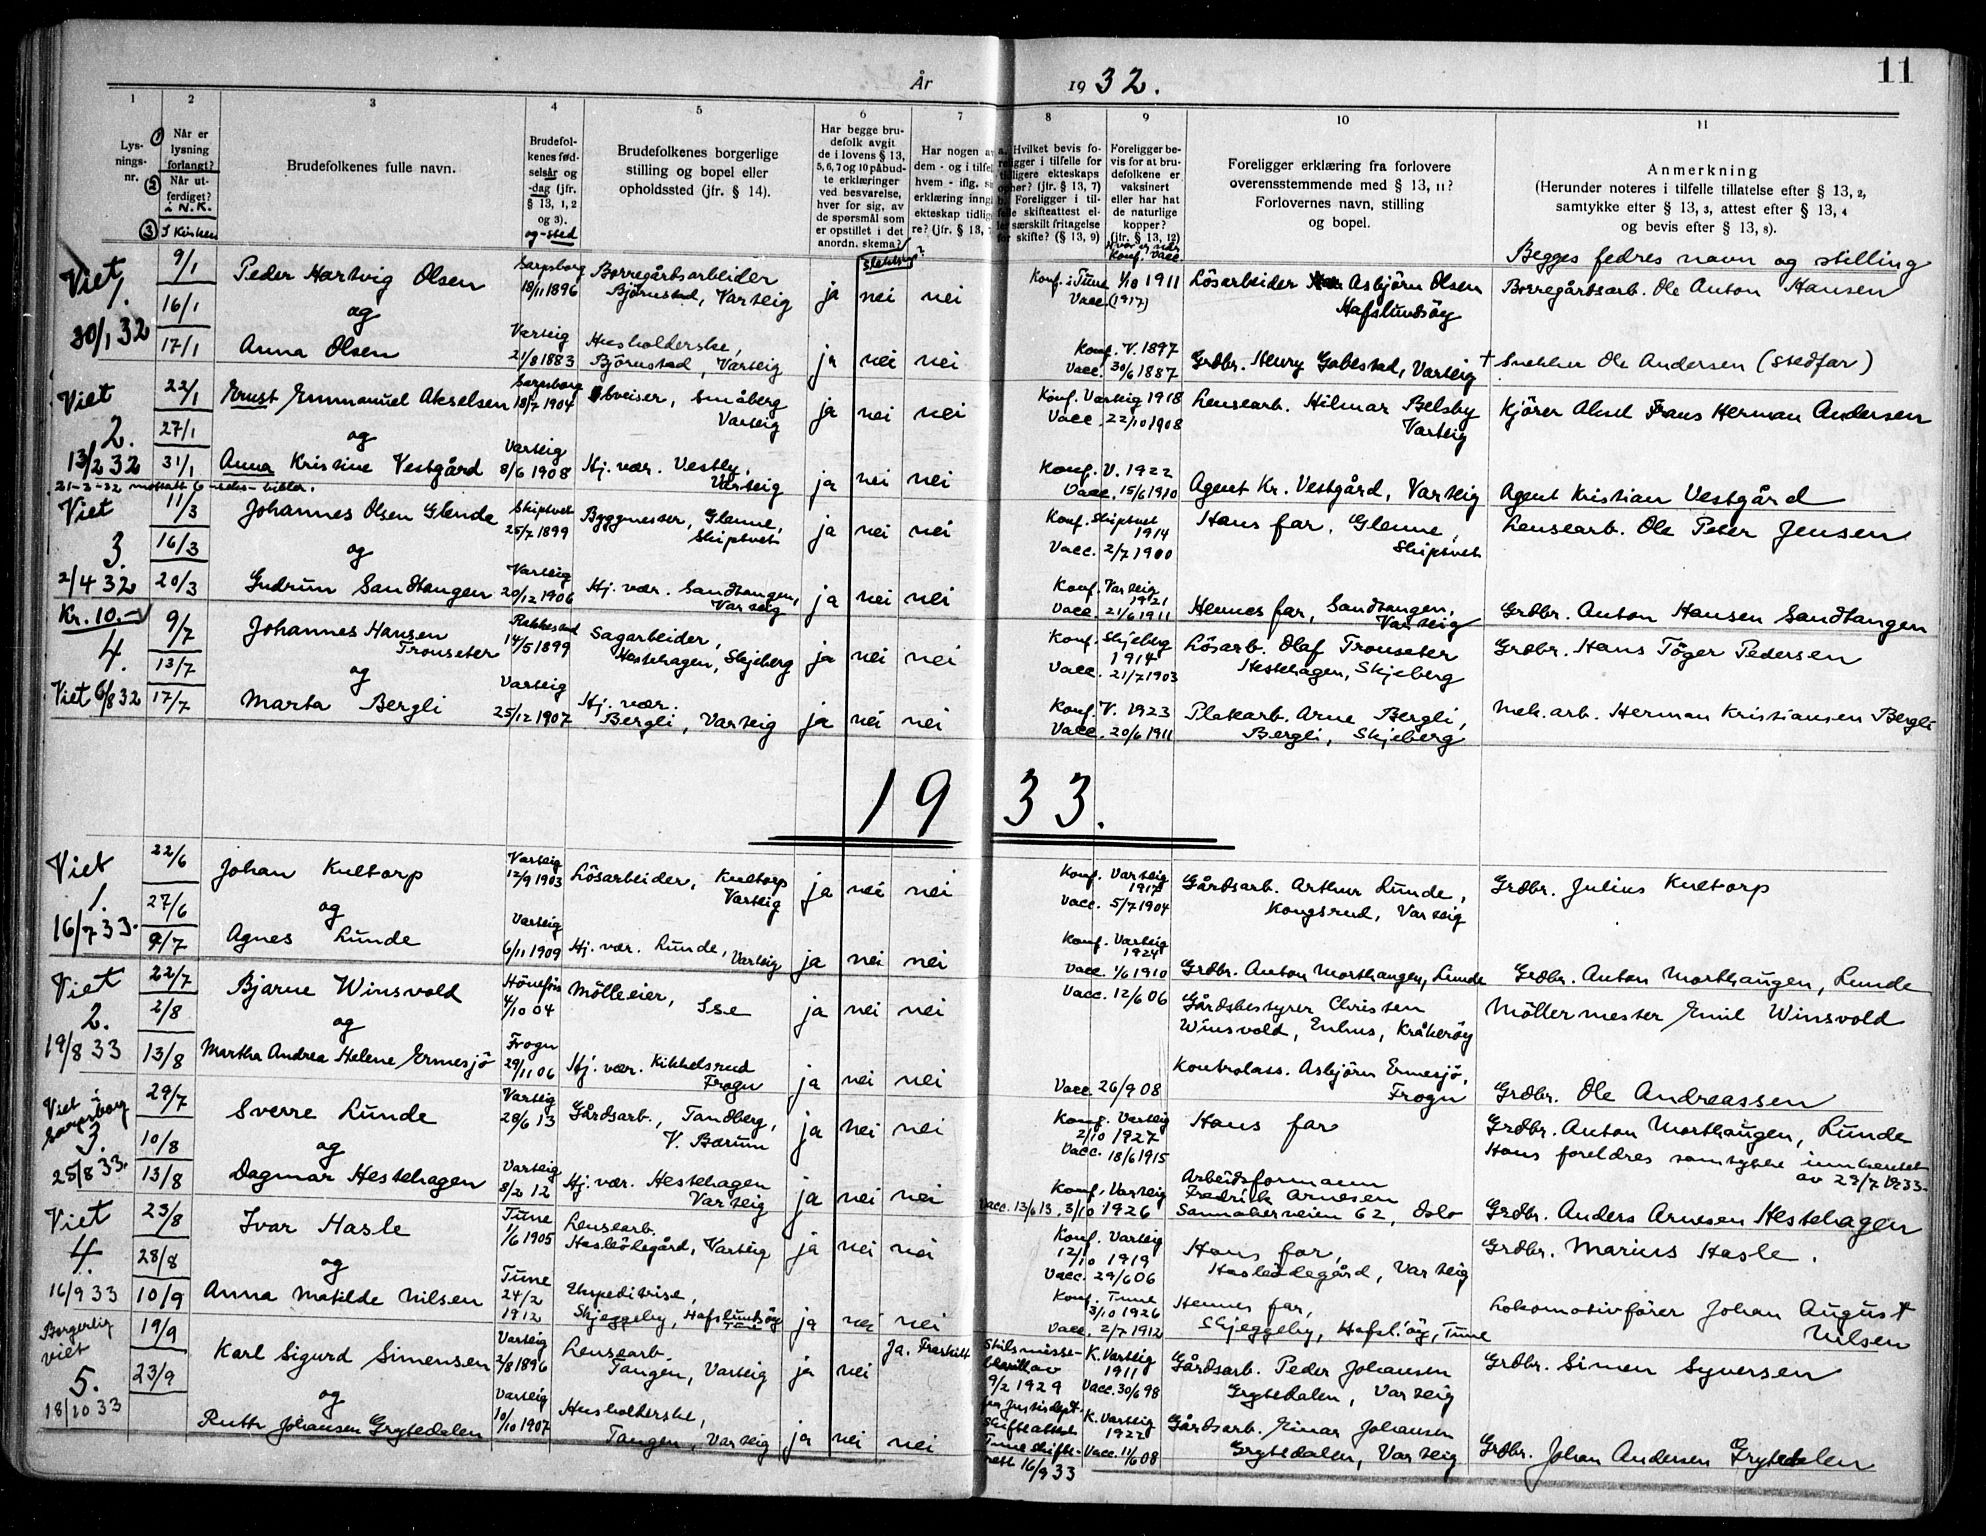 11
År 1932.
1 2 3 4 5 6 7 8 9 10 11
Lysnings-nr.
① Når er lysning forlangt?
② Når utferdiget? i N.K.
③ I Kirken
Brudefolkenes fulle navn.
Brudefolkenes fødselsår og -dag (jfr. § 13, 1, 2 og 3). og -sted
Brudefolkenes borgerlige stilling og bopel eller opholdssted (jfr. § 14).
Har begge brudefolk avgit de i lovens § 13, 5, 6, 7 og 10 påbudte erklæringer ved besvarelse, hver for sig, av de spørsmål som er opstillet i det anordn. skema?
Har nogen av dem - og i tilfelle hvem - iflg.
erklæring inngått
ekteskap tidligere? (jfr. § 13,
a. Hvilket bevis foreligger i tilfelle for tidligere ekteskaps ophør? (jfr. § 13, 7)
b. Foreligger i tilfelle skifteattest eller særskilt fritagelse for skifte? (§ 13, 9)
Foreligger bevis for at brudefolkene er vaksinert eller har hat de naturlige kopper? (jfr. § 13, 12)
Konf. Vacc.
Foreligger erklæring fra forlovere overensstemmende med § 13, 11?
Forlovernes navn, stilling og bopel.
Anmerkning
(Herunder noteres i tilfelle tillatelse efter § 13, 2, samtykke efter § 13, 3, attest efter § 13, 4 og bevis efter § 13, 8).
Begges fedres navn og stilling
Viet 1. 30/1 32
9/1 Peder Hartvig Olsen Sarpsborg 18/11 1896 Borregårdsarbeider Bjørnstad, Varteig ja nei nei Konf. i Tune 1/10 1911 Vacc. (1917) Lösarbeider Asbjörn Olsen Hafslundsöy Borregårdsarb. Ole Anton Hansen
16/1 og
17/1 Anna Olsen Varteig 21/8 1883 Husholderske, Björnstad, Varteig ja nei nei Konf. V. 1897 Vacc. 30/6 1887 Grdbr. Henry Gabestad, Varteig † Snekker Ole Andersen (stedfar)
Viet 2. 13/2 32
22/1 Ernst Emmanuel Akselsen Sarpsborg 18/7 1904 Småberg Varteig ja nei nei Konf. Varteig 1918 Vacc. 22/10 1908 Lensearb. Hilmar Belsby Varteig Kjörer Alnet Frans Herman Andersen
27/1 og
31/1 Anna Kristine Vestgård Varteig 8/6 1908 Hj. vær. Vestby, Varteig ja nei nei Konf. V. 1922 Vacc. 15/6 1910 Agent Kr. Vestgård, Varteig Agent Kristian Vestgård
Viet 3. 2/4 32
11/3 Johannes Olsen Glende Skiptvet 25/7 1899 Byggmester, Glenne, Skiptvet ja nei nei Konf. Skiptvet 1914 Vacc. 2/7 1900 Hans far, Glenne, Skiptvet Lensearb. Ole Peter Jensen
16/3 og
20/3 Gudrun Sandtangen Varteig 20/12 1906 Hj. vær. Sandtangen, Varteig ja nei nei Konf. Varteig 1921 Vacc. 21/6 1911 Hennes far, Sandtangen, Varteig Grdbr. Anton Hansen Sandtangen
Kr. 10.- 4. Viet 6/8 32
9/7 Johannes Hansen Tronseter Rakkestad 14/5 1899 Sagarbeider, Hestehagen, Skjeberg ja nei nei Konf. Skjeberg 1914 Vacc. 21/7 1903 Lösarb. Olaf Tronseter Hestehagen, Skjeberg Grdbr. Hans Töger Pedersen
13/7 og
17/7 Marta Bergli Varteig 25/12 1907 Hj. vær. Bergli, Varteig ja nei nei Konf. V. 1923 Vacc. 20/6 1911 Platearb. Arne Bergli, Bergli, Skjeberg Mek. arb. Herman Kristiansen Bergli
1933.
Viet 1. 16/7 33.
22/6 Johan Kultorp Varteig 12/9 1903 Lösarbeider, Kultorp Varteig ja nei nei Konf. Varteig 1917 Vacc. 5/7 1904 Gårdsarb. Arthur Lunde, Kongsrud, Varteig Grdbr. Julius Kultorp
27/6 og
9/7 Agnes Lunde Varteig 6/11 1909 Hj. vær. Lunde, Varteig ja nei nei Konf. Varteig 1924 Vacc. 1/6 1910 Grdbr. Anton Morthaugen, Lunde Grdbr. Anton Morthaugen, Lunde
Viet 2. 19/8 33
22/7 Bjarne Winsvold Hönefoss 4/10 04 Mölleeier, Ise ja nei nei Vacc. 12/6 06 Gårdsbestyrer Christen Winsvold, Enhus, Kråkeröy Möllermester Emil Winsvold
2/8 og
13/8 Martha Andrea Helene Ermesjö Frogn 29/11 06 Hj. vær. Kikkelsrud Frogn ja nei nei Vacc. 26/9 08 Kontrolass. Asbjörn Ermesjö, Frogn Grdbr. Ole Andreassen
Viet i Sarpsborg 3. 25/8 33.
29/7 Sverre Lunde Varteig 28/6 13 Gårdsarb., Tandberg, V. Bærum ja nei nei Konf. Varteig 2/10 1927 Vacc. 18/6 1915 Hans far Grdbr. Anton Morthaugen, Lunde
Hans foreldres samtykke innhentet av 29/7 1933.
10/8 og
13/8 Dagmar Hestehagen Varteig 8/2 12 Hj. vær. Hestehagen Varteig ja nei nei Vacc. 13/6 13. Konf. Varteig 3/10 1926 Arbeidsformann Fredrik Arnesen Sannakerveien 62, Oslo Grdbr. Anders Arnesen Hestehagen
Viet 4. 16/9 33
23/8 Ivar Hasle Tune 1/6 1905 Lensearb. Hasleödegård, Varteig ja nei nei Konf. Varteig 12/10 1919 Vacc. 29/6 06 Hans far, Hasleödegård, Varteig Grdbr. Marius Hasle.
28/8 og
10/9 Anna Matilde Nilsen Tune 24/2 1912 Ekspeditrise, Skjeggeby, Hafslundsöy Tune ja nei nei Konf. Tune 3/10 1926 Vacc. 2/7 1912 Hennes far, Skjeggeby, Hafsl.öy, Tune Lokomotivfører Johan August Nilsen
Borgerlig viet 5. 18/10 33
19/9 Karl Sigurd Simensen Varteig 2/8 1896 Lensearb. Tangen, Varteig ja nei Ja. Fraskilt Skilsmissebevill. av 9/2 1929 fra Justisdept. Skifteattest Tune skifterett 16/9 33 K. Varteig 1911 Vacc. 30/6 98 Gårdsarb. Peder Johansen Grytedalen, Varteig Grdbr. Simen Syversen
23/9 og
Ruth Johansen Grytedalen Varteig 10/10 1907 Husholderske, Tangen, Varteig ja nei nei K. Varteig 1922 Vacc. 11/6 08 Gårdsarb. Einar Johansen Grytedalen, Varteig Grdbr. Johan Andersen Grytedalen